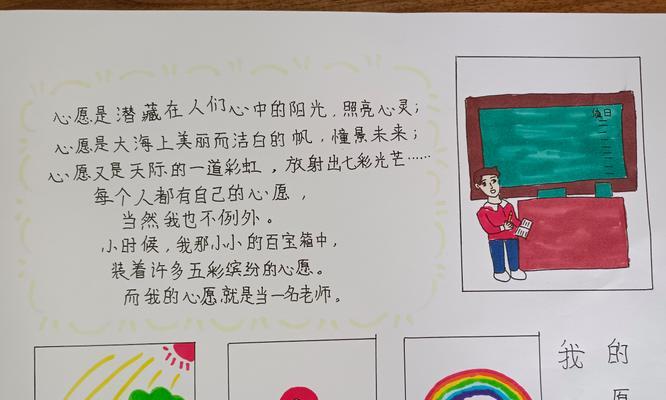 心愿是潜藏在人们心中的阳光，照亮心灵；
心愿是大海上美丽而洁白的帆，憧景未来；
心愿又是天际的一道彩虹，放射出七彩光芒……
每个人都有自己的心愿，
当然我也不例外。
小时候，我那小小的百宝箱中，
装着许多五彩缤纷的心愿。
而我的心愿就是当一名老师。
我的